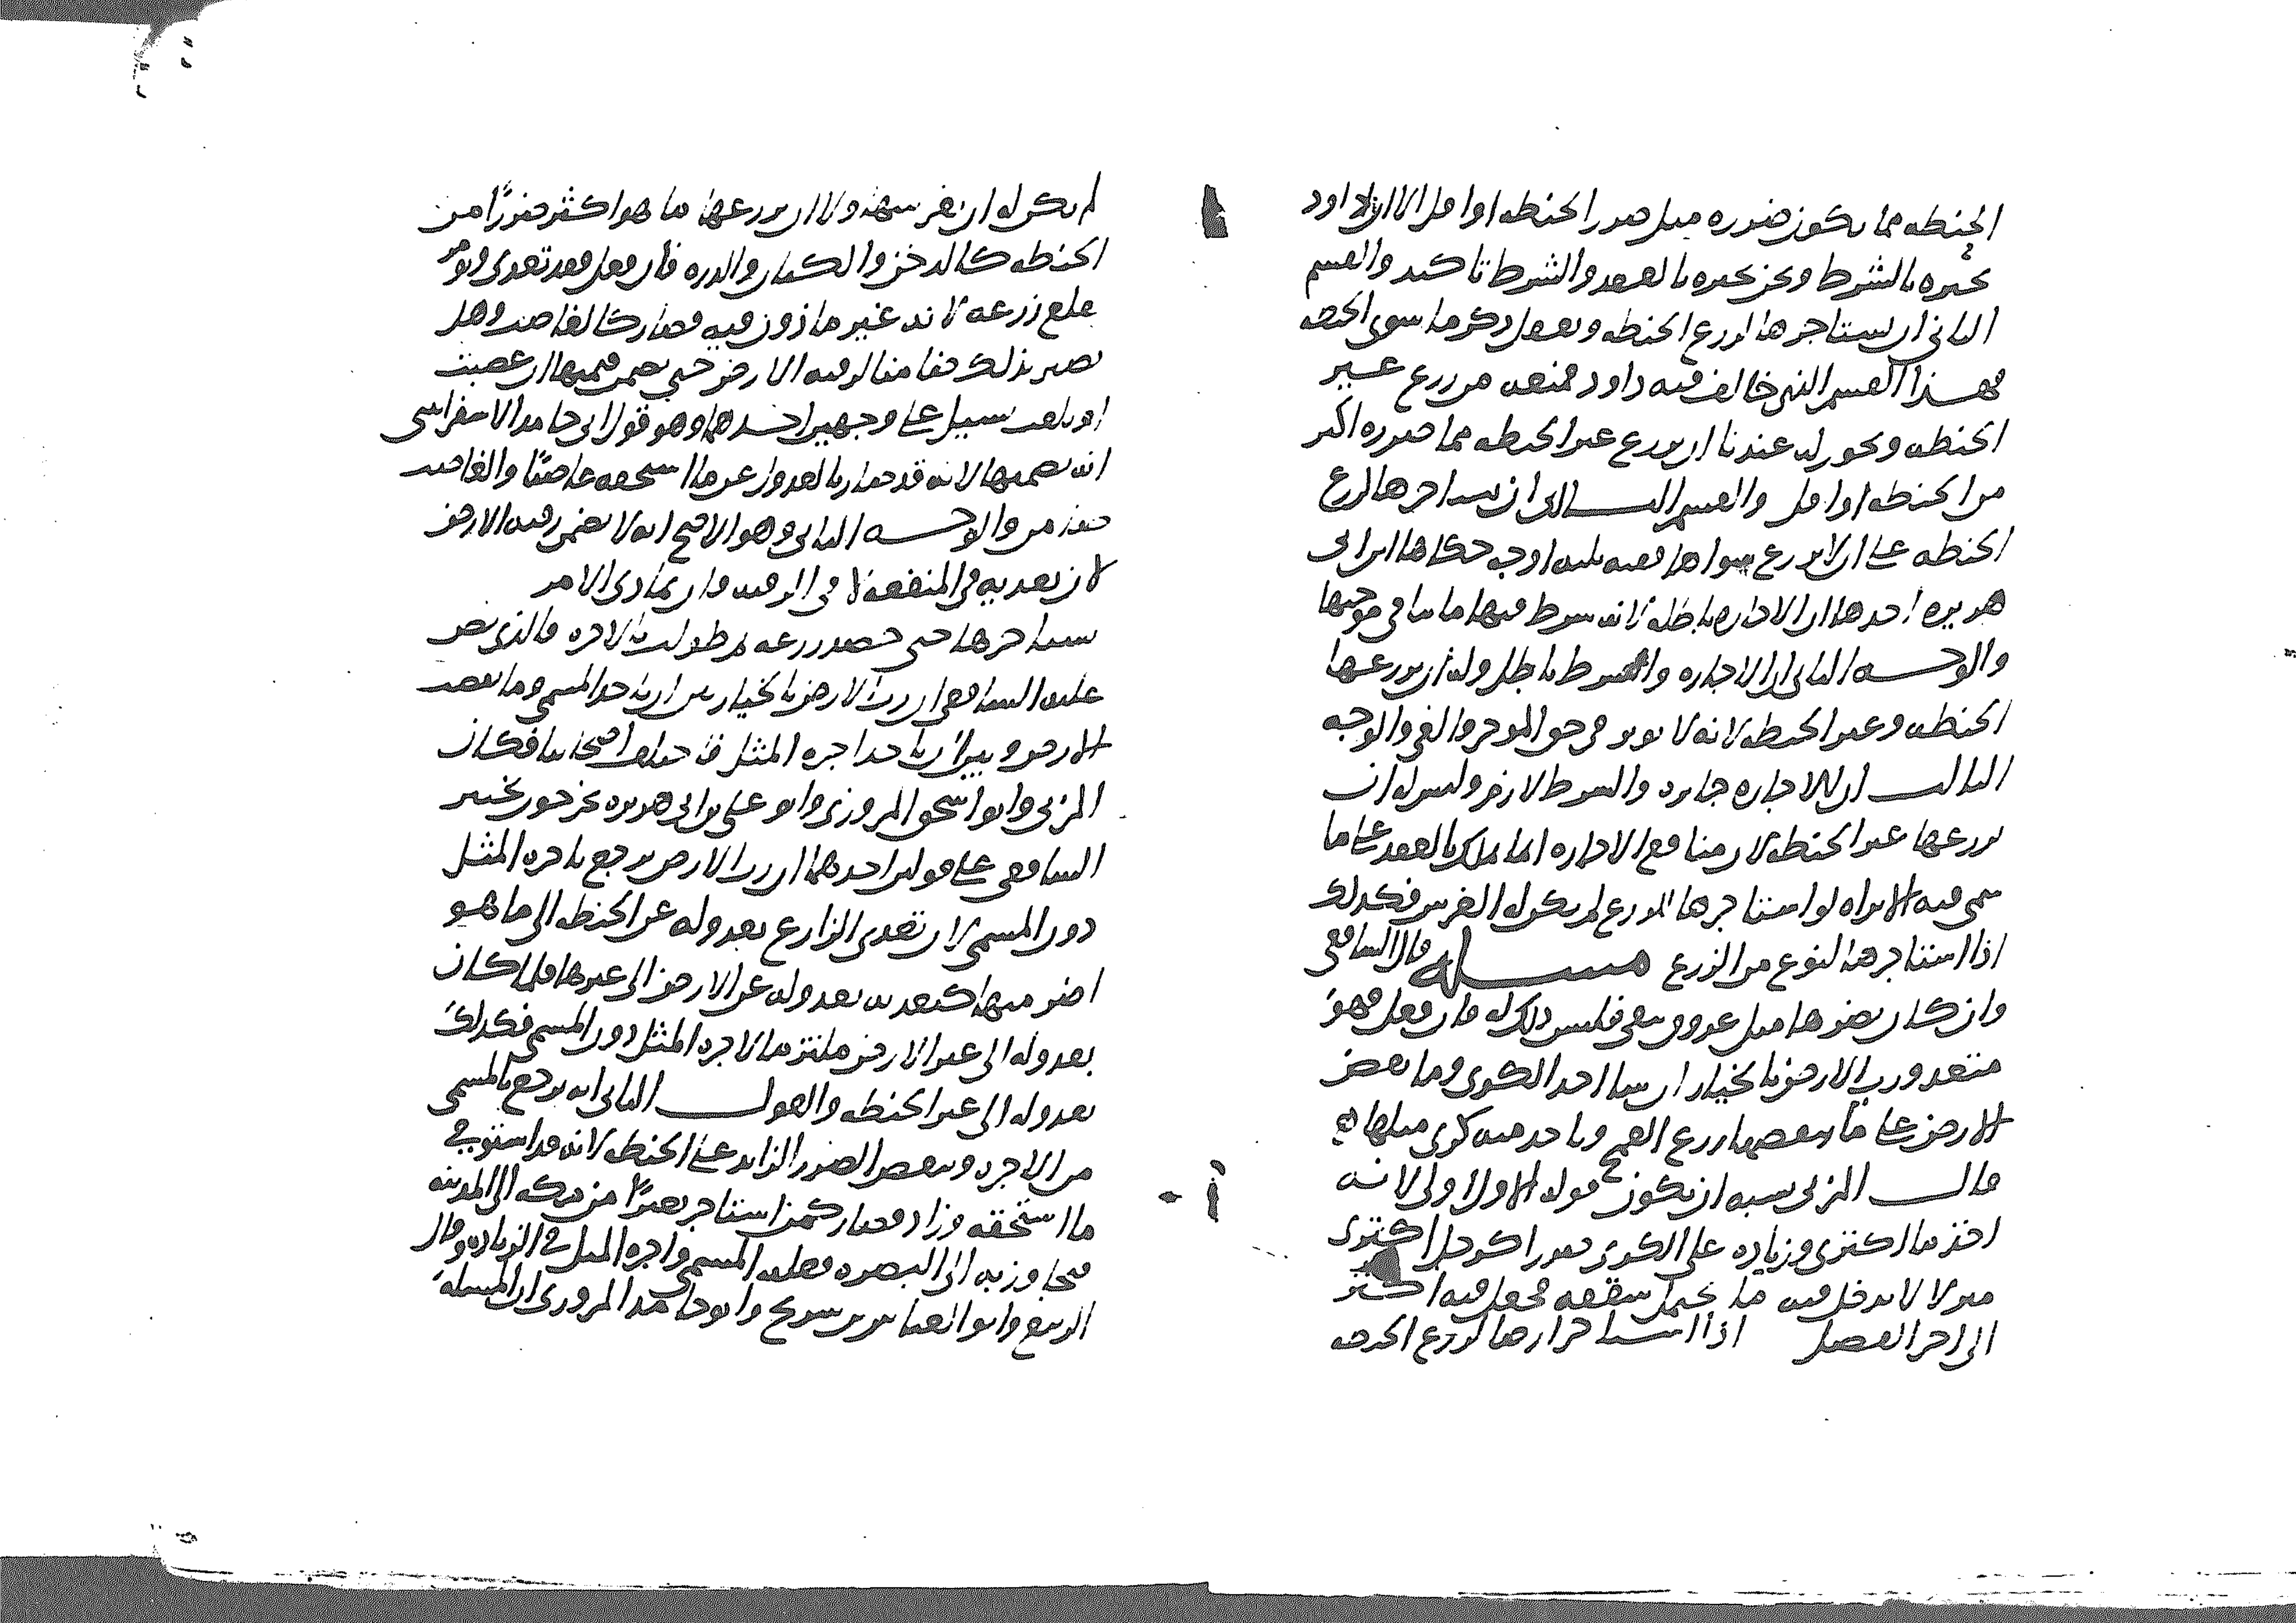 الحنطه مما يكون ضرره مثل ضرر الحنطه او اقل الا ان داود
يجيزه بالشرط ونحن نجيزه بالعقد والشرط تاكيد والقسم
الثاني ان يستاجرها لزرع الحنطه ويغفل ذكر ما سوى الحنطه
فهذا القسم الذي خالف فيه داود فمنعه من زرع غير
الحنطه ويجوز له عندنا ان يزرع غير الحنطه مما ضرره اكثر
من الحنطه او اقل والقسم الثالث ان يستاجرها لزرع
الحنطه على ان لا يزرع سواها ففيه ثلثه اوجه حكاها ابن ابي
هريره احدها ان الاجاره باطله لانه شرط فيها ما ينافي موجبها
والوجه الثاني ان الاجاره والشرط باطل وله ان يزرعها
الحنطه وغير الحنطه لانه لا يوثر في حق الموجر والفي والوجه
الثالث ان الاجاره جايزه والشرط لازم وليس له ان
يزرعها غير الحنطه لان منافع الاجاره انما تملك بالعقد على ما
سمي فيه الا تراه لو استاجرها للزرع لم يكن له الغرس فكذلك
اذا استاجرها لنوع من الزرع مسله قال الشافعي
وان كان يضرها مثل عروق تبقى فليس ذلك له فان فعل فهو
متعد ورب الارض بالخيار ان شا اخذ الكرى وما نقص
الارض على ما ينقصها زرع القمح وياخذ منه كرى مثلها
قال المزني يشبه ان يكون قوله الاول اولى لانه
اخذ ما اكترى وزياده على الكرى ضررا كرجل اكترى
منزلا لا يدخل فيه ما يحمل سقفه فجعل فيه اكثر
الى اخر الفصل اذا استاجر ارضا لزرع الحنطه
لم يكن له ان يغرسها ولا ان يزرعها ما هو اكثر ضررا من
الحنطه كالدخن والكتان والذره فان فعل فقد تعدى ويومر
بقلع زرعه لانه غير ماذون فيه فصار كالغاصب وهل
يصير بذلك ضامنا لرقبه الارض حتى يضمن قيمتها ان غصبت
او تلفت بسيل على وجهين احدهما وهو قول ابي حامد الاسفراييني
انه يضمنها لانه قد صار بالعدول عن ما استحقه غاصبا والغاصب
ضامن والوجه الثاني وهو الاصح انه لا يضمن رقبه الارض
لان تعديه في المنفعه لا في الرقبه فان تمادى الامر
بمستاجرها حتى حصد زرعه ثم طولب بالاجره فالذي نص
عليه الشافعي ان رب الارض بالخيار بين ان ياخذ المسمى وما نقصت
الارض وبين ان ياخذ اجره المثل فاختلف اصحابنا فكان
المزني وابو اسحق المروزي وابو علي بن ابي هريره يخرجون تخيير
الشافعي على قولين احدهما ان رب الارض يرجع باجره المثل
دون المسمى لان تعدى الزارع بعدوله عن الحنطه الى ما هو
اضر منها كتعديه بعدوله عن الارض الى غيرها فلما كان
بعدوله الى غير الارض ملتزما لاجره المثل دون المسمى فكذلك
بعدوله الى غير الحنطه والقول الثاني انه يرجع بالمسمى
من الاجره وبنقص الضرر الزايد على الحنطه لانه قد استوفى
ما استحقه وزاد فصار كمن استاجر بعيرا من مكه الى المدينه
فتجاوز به الى البصره فعليه المسمى واجره المثل في الزياده وقال
الربيع وابو العباس بن سريج وابو حامد المروزي ان المسله